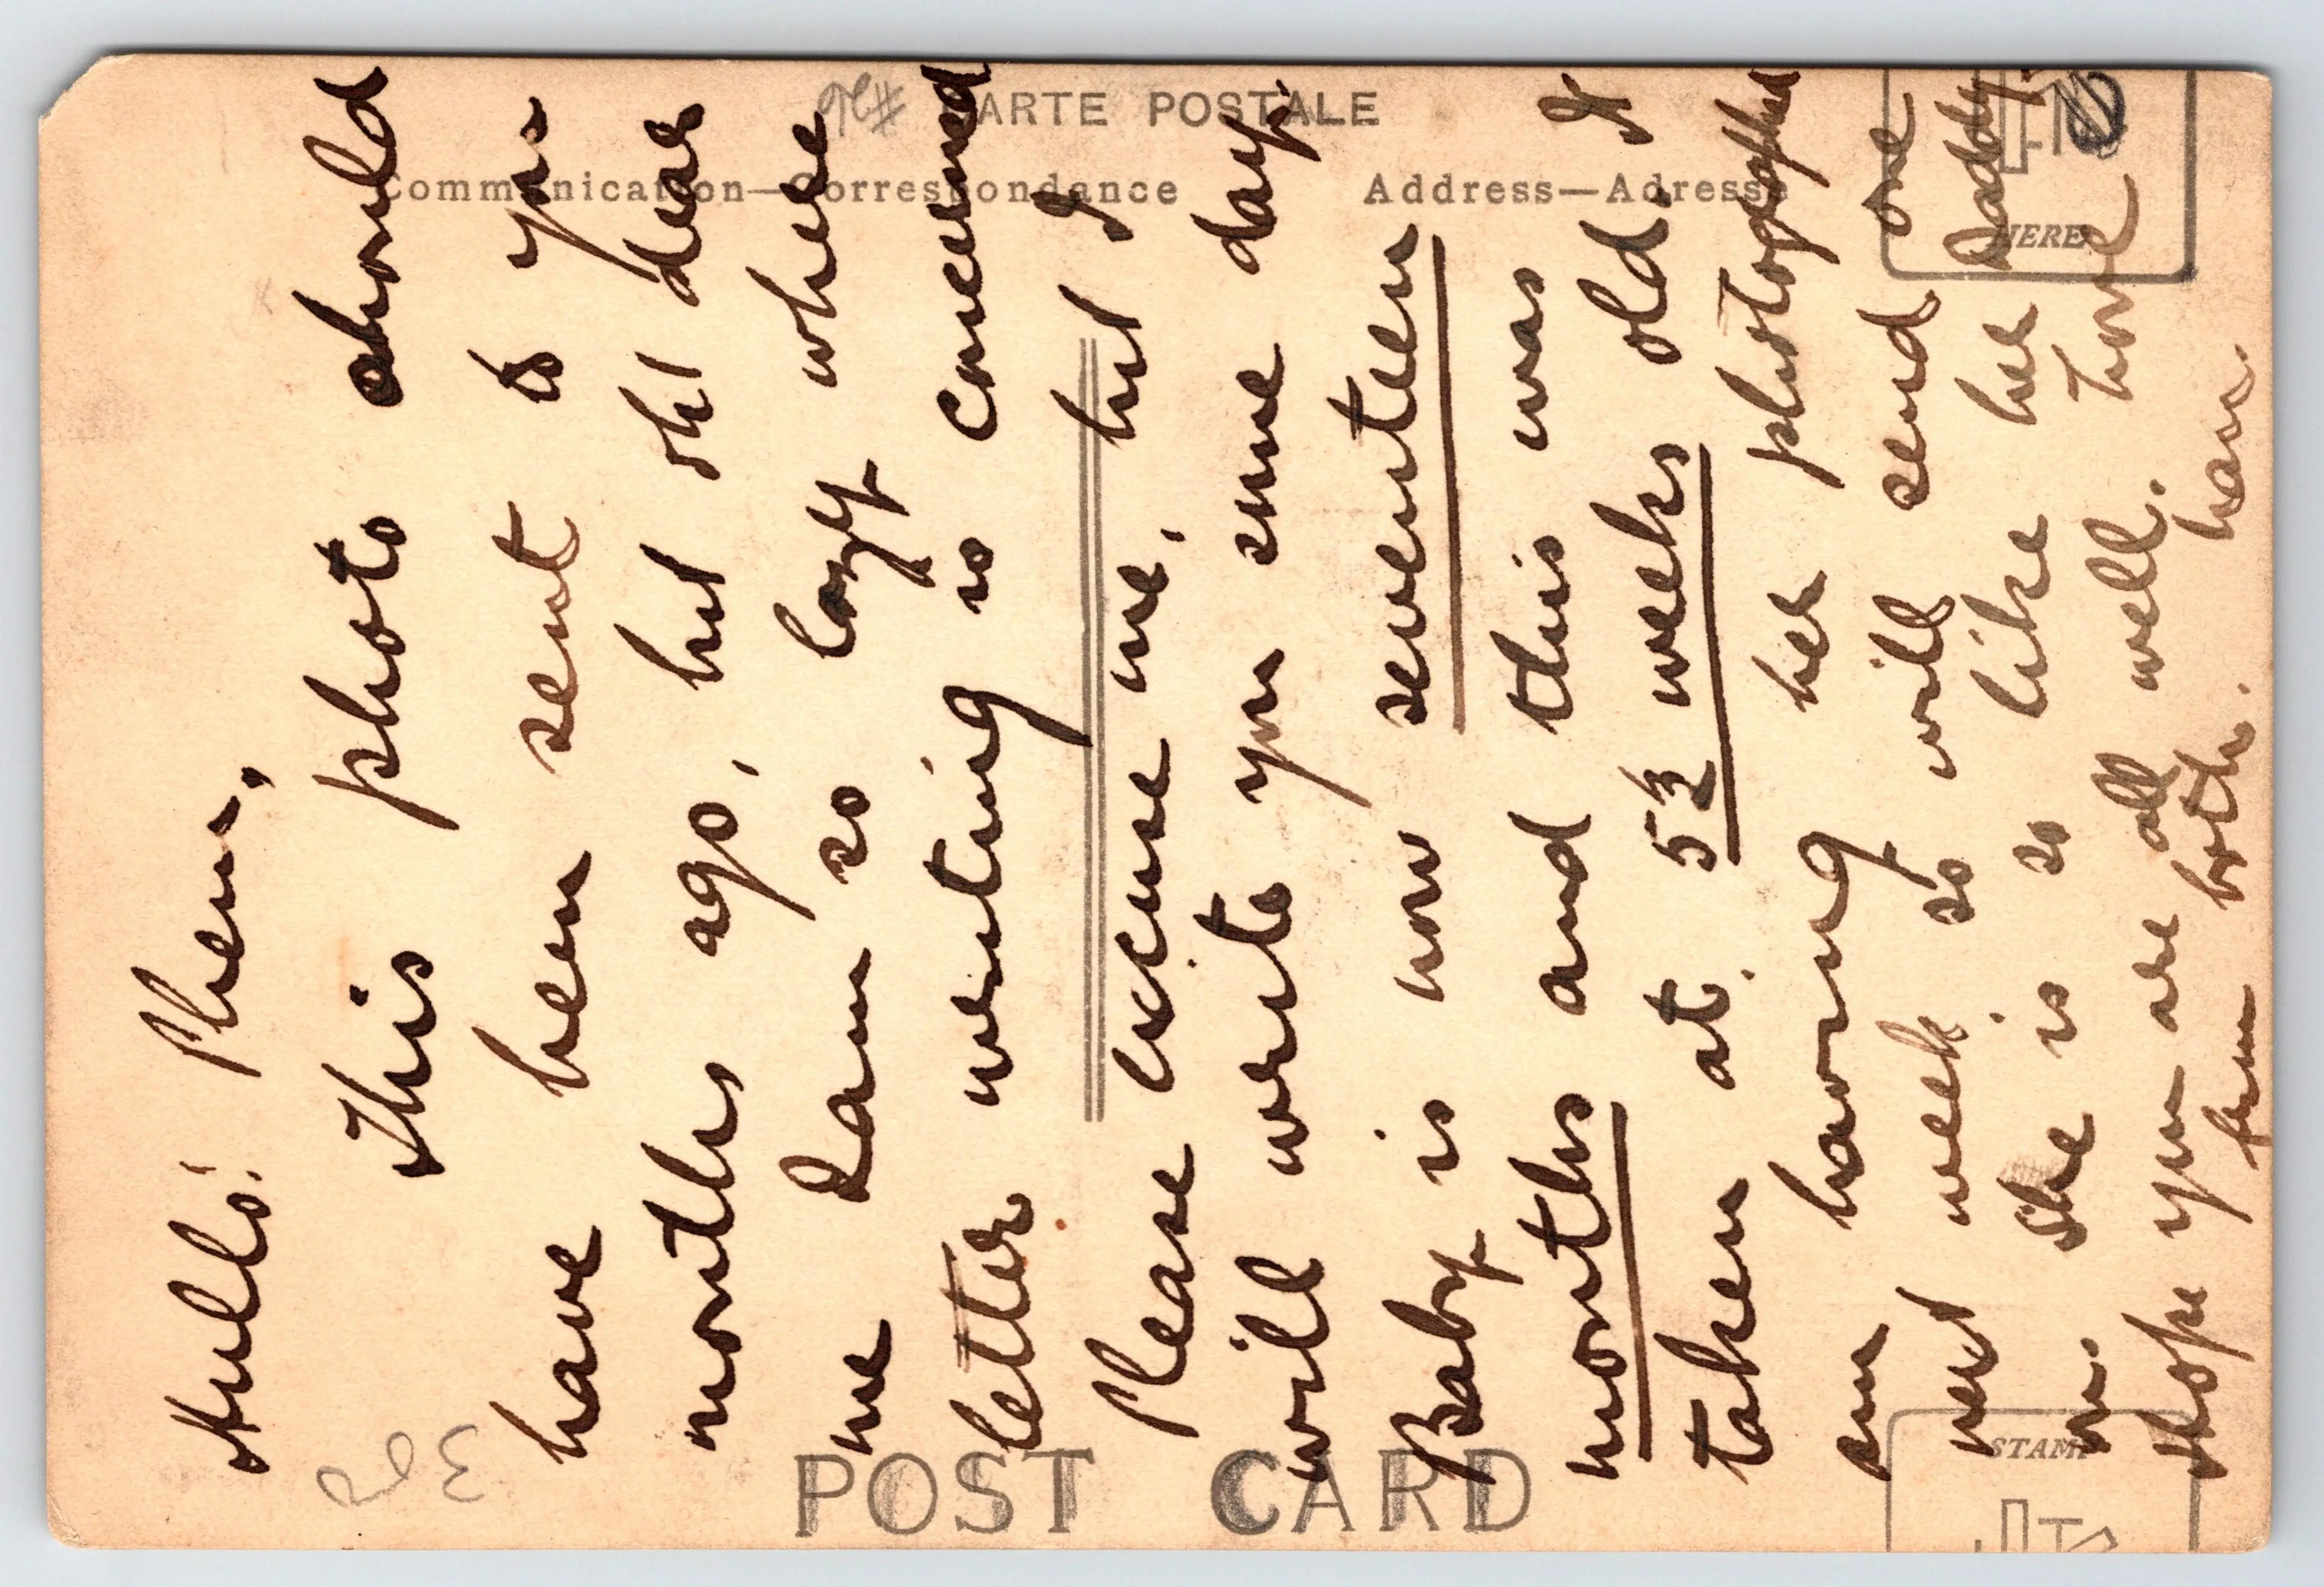 CARTE POSTALE
Communication—Correspondance
Address—Adresse
HERE
POST CARD
STAMP
Hullo! Phem,
This photo should
have been sent to you
months ago, but oh! dear
me I am so lazy where
letter writing is concerned
Please excuse me, but I
will write you some day.
Baby is now seventeen
months and this was
taken at 5½ weeks old. I
am having her photographed
next week so will send one
on. She is so like her Daddy.
Hope you are all well. Love
from both.